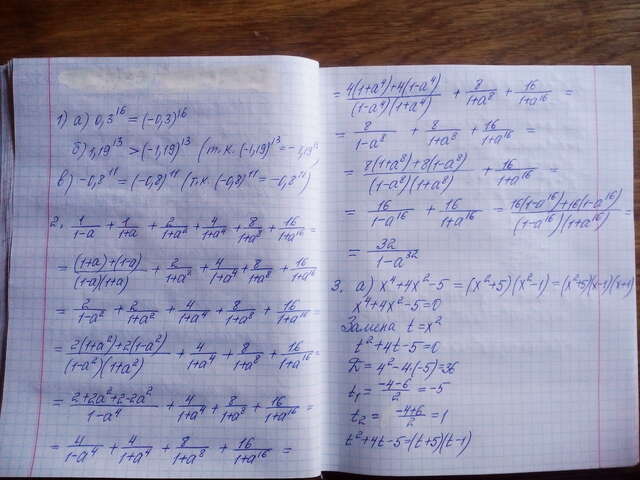 1) а) 0,3^16 = (-0,3)^16
б) 1,19^13 > (-1,19)^13 (т.к. (-1,19)^13 = -1,19^13
в) -0,8^11 = (-0,8)^11 (т.к. (-0,8)^11 = -0,8^11)
2. 1/(1-a) + 1/(1+a) + 2/(1+a^2) + 4/(1+a^4) + 8/(1+a^8) + 16/(1+a^16) =
= ((1+a)+(1-a))/((1-a)(1+a)) + 2/(1+a^2) + 4/(1+a^4) + 8/(1+a^8) + 16/(1+a^16)
= 2/(1-a^2) + 2/(1+a^2) + 4/(1+a^4) + 8/(1+a^8) + 16/(1+a^16) =
= (2(1+a^2)+2(1-a^2))/((1-a^2)(1+a^2)) + 4/(1+a^4) + 8/(1+a^8) + 16/(1+a^16) =
= (2+2a^2+2-2a^2)/(1-a^4) + 4/(1+a^4) + 8/(1+a^8) + 16/(1+a^16) =
= 4/(1-a^4) + 4/(1+a^4) + 8/(1+a^8) + 16/(1+a^16) =
= (4(1+a^4)+4(1-a^4))/((1-a^4)(1+a^4)) + 8/(1+a^8) + 16/(1+a^16) =
= 8/(1-a^8) + 8/(1+a^8) + 16/(1+a^16) =
= (8(1+a^8)+8(1-a^8))/((1-a^8)(1+a^8)) + 16/(1+a^16) =
= 16/(1-a^16) + 16/(1+a^16) = (16(1-a^16)+16(1-a^16))/((1-a^16)(1+a^16)) =
= 32/(1-a^32)
3. а) x^4+4x^2-5 = (x^2+5)(x^2-1) = (x^2+5)(x-1)(x+1)
x^4+4x^2-5=0
Замена t=x^2
t^2+4t-5=0
D = 4^2-4·(-5)=36
t1 = (-4-6)/2 = -5
t2 = (-4+6)/2 = 1
t^2+4t-5=(t+5)(t-1)